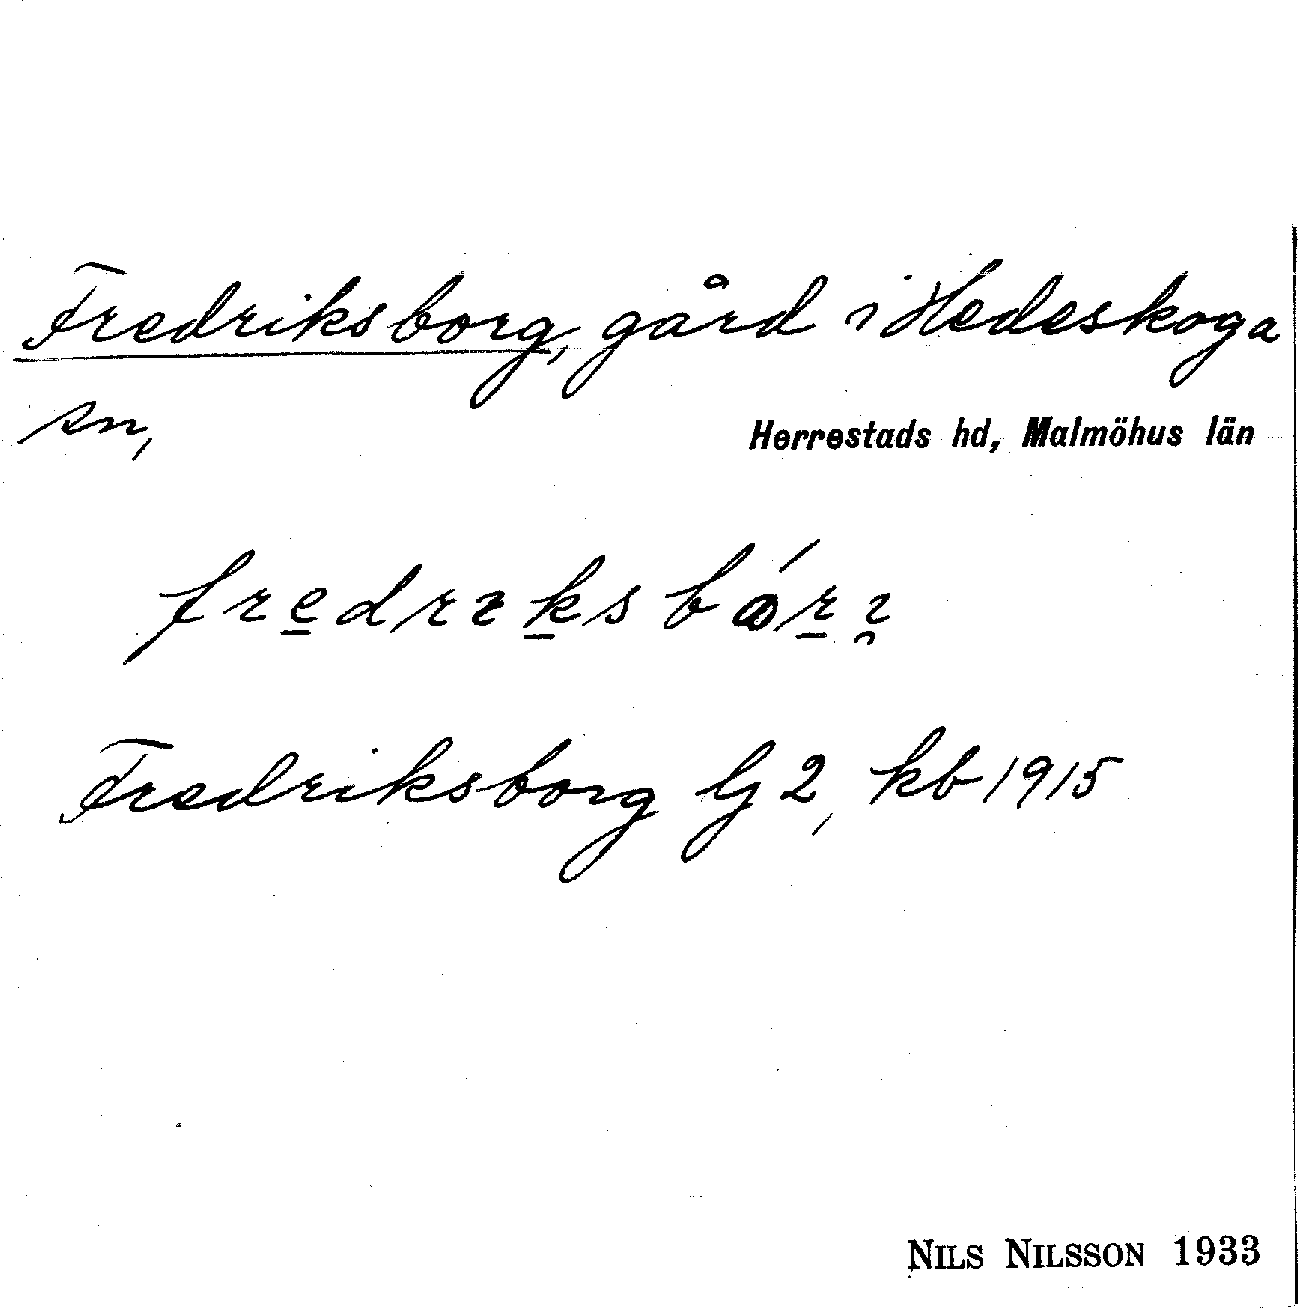 Fredriksborg, gård i Hedeskoga
sn,
Herrestads hd, Malmöhus län
Fredriksborg Lj 2, kb 1915
NILS NILSSON 1933